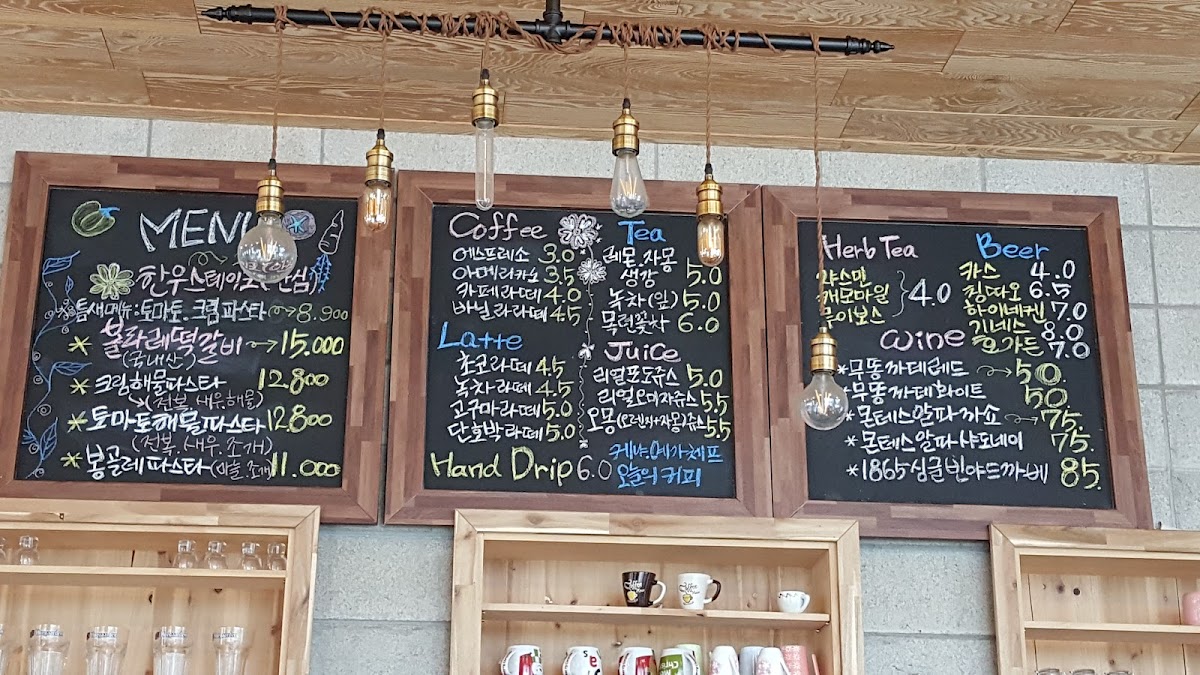 MENU
한우스테이크(안심)
틈새메뉴:토마토.크림파스타 8.900
불라래떡갈비 15.000
(국내산)
* 크림해물파스타 12.800
(전복.새우.해물)
* 토마토해물파스타 12.800
(전복.새우.조개)
* 봉골레파스타 11.000
Coffee
에스프레소 3.0
아메리카노 3.5
카페라떼 4.0
바닐라라떼 4.5
Latte
초코라떼 4.5
녹차라떼 4.5
고구마라떼 5.0
단호박라떼 5.0
Hand Drip 6.0
케냐.예가체프
오늘의 커피
Tea
레몬.자몽
생강 5.0
녹차(잎) 5.0
목련꽃차 6.0
Juice
리얼포도쥬스 5.0
리얼오미자쥬스 5.5
오몽(오렌지+자몽)쥬스 5.5
Herb Tea
쟈스민
캐모마일 4.0
루이보스
Beer
카스 4.0
칭따오 6.5
하이네켄 7.0
기네스 8.0
호가든 7.0
Wine
* 무똥까데레드 50.
* 무똥까데화이트 50.
* 몬테스알파까쇼 75.
* 몬테스알파샤도네이 75.
* 1865싱글빈야드까베 85.